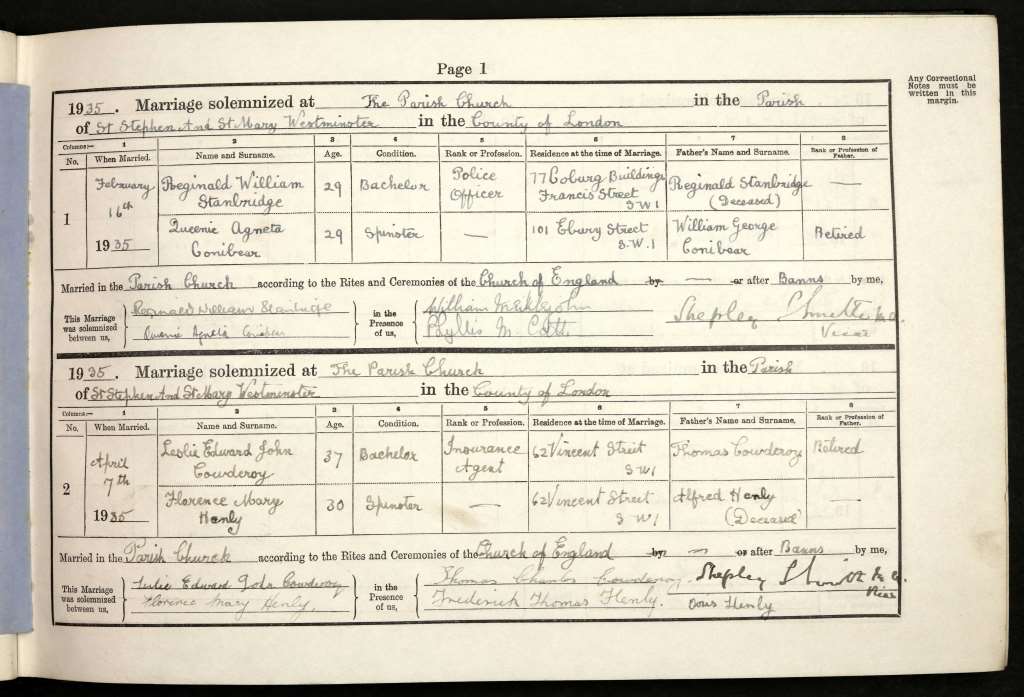 Page 1
Any Correctional
Notes must be
written in this
margin.
1935. Marriage solemnized at The Parish Church in the Parish
of St Stephen And St Mary Westminster in the County of London
Columns:— 1 2 3 4 5 6 7 8
No. When Married. Name and Surname. Age. Condition. Rank or Profession. Residence at the time of Marriage. Father's Name and Surname. Rank or Profession of Father.
1 February 16th 1935
Reginald William Stanbridge 29 Bachelor Police Officer 77 Coburg Buildings Francis Street S W 1 Reginald Stanbridge (Deceased) —
Queenie Agneta Conibear 29 Spinster — 101 Ebury Street S.W.1 William George Conibear Retired
Married in the Parish Church according to the Rites and Ceremonies of the Church of England by — or after Banns by me,
This Marriage was solemnized between us, Reginald William Stanbridge
Queenie Agneta Conibear
in the Presence of us, William
Phyllis M.
Shepley
Vicar
1935. Marriage solemnized at The Parish Church in the Parish
of St Stephen And St Mary Westminster in the County of London
Columns:— 1 2 3 4 5 6 7 8
No. When Married. Name and Surname. Age. Condition. Rank or Profession. Residence at the time of Marriage. Father's Name and Surname. Rank or Profession of Father.
2 April 7th 1935
Leslie Edward John Cowderoy 37 Bachelor Insurance Agent 62 Vincent Street S W 1 Thomas Cowderoy Retired
Florence Mary Henly 30 Spinster — 62 Vincent Street S W 1 Alfred Henly (Deceased) —
Married in the Parish Church according to the Rites and Ceremonies of the Church of England by — or after Banns by me,
This Marriage was solemnized between us, Leslie Edward John Cowderoy
Florence Mary Henly.
in the Presence of us, Thomas Charles Cowderoy.
Frederick Thomas Henly.
Shepley
Vicar
Doris Henly